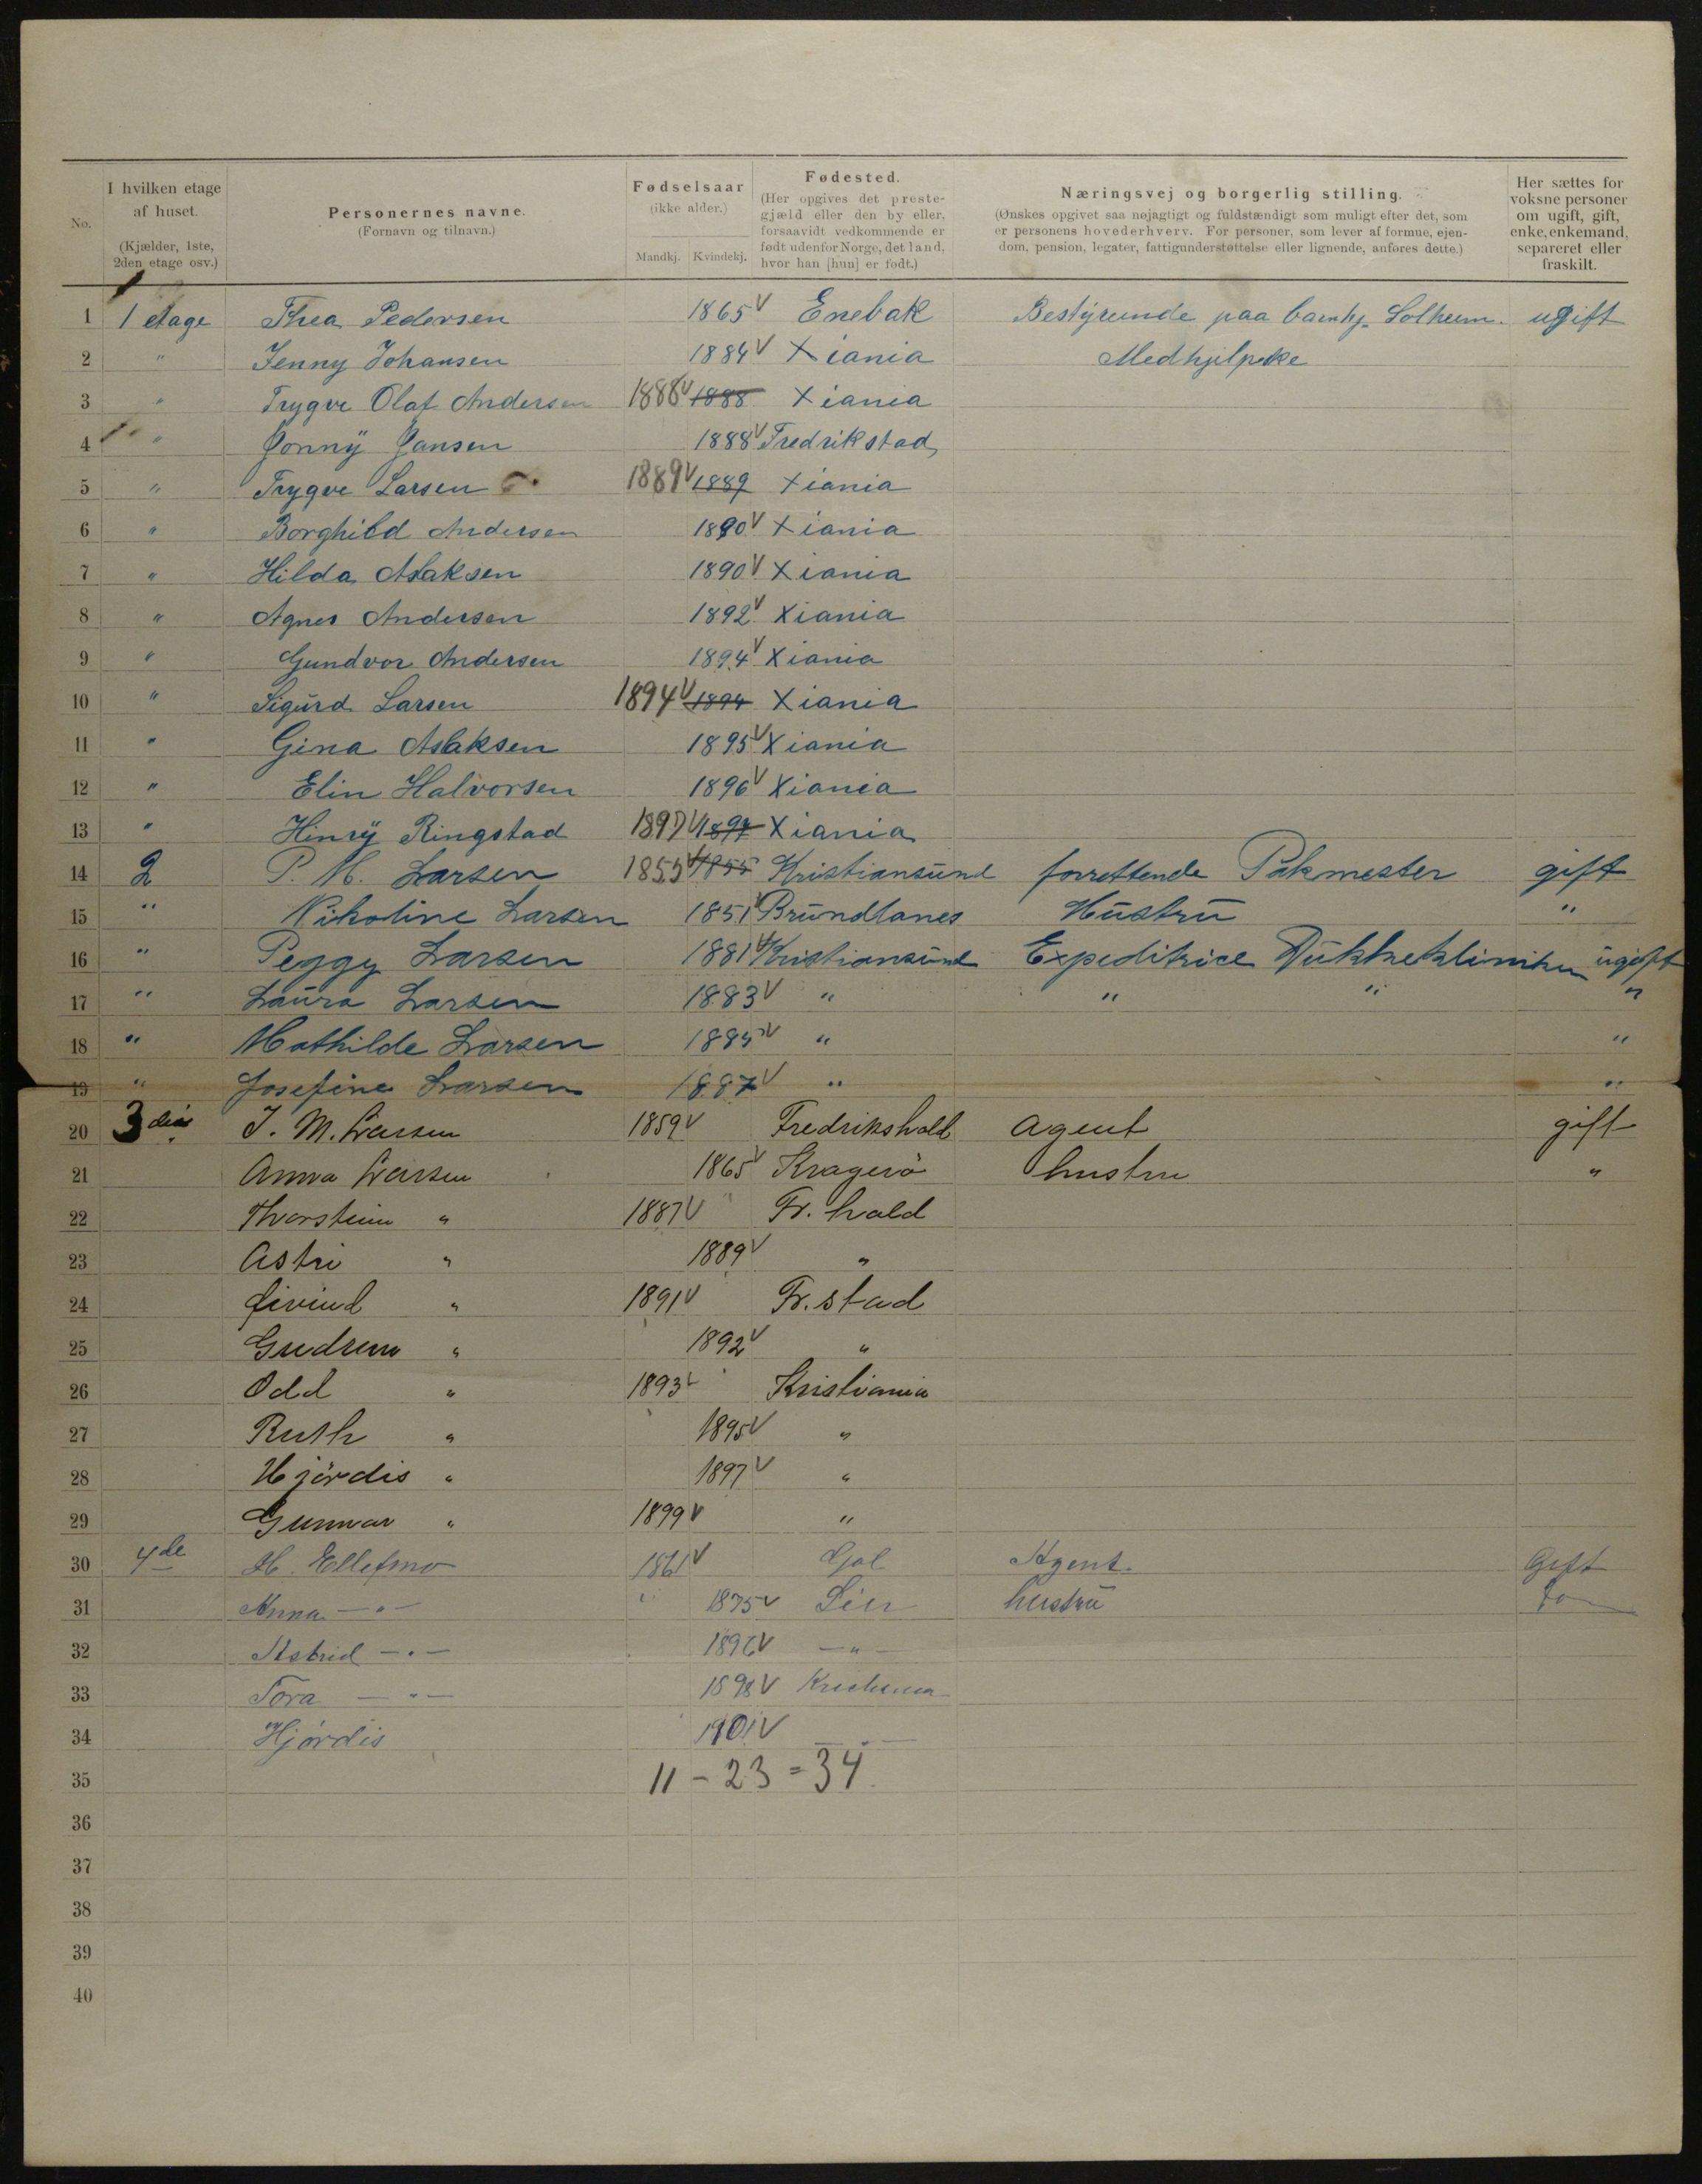 No. I hvilken etage af huset. (Kjælder, 1ste, 2den etage osv.) Personernes navne. (Fornavn og tilnavn.) Fødselsaar (ikke alder.) Mandkj. Kvindekj. Fødested. (Her opgives det prestegjæld eller den by eller, forsaavidt vedkommende er født udenfor Norge, det land, hvor han [hun] er født.) Næringsvej og borgerlig stilling. (Ønskes opgivet saa nøjagtigt og fuldstændigt som muligt efter det, som er personens hovederhverv. For personer, som lever af formue, ejendom, pension, legater, fattigunderstøttelse eller lignende, anføres dette.) Her sættes for voksne personer om ugift, gift, enke, enkemand, separeret eller fraskilt.
1 1 etage Thea Pedersen 1865 V Enebak Bestyrende paa barnhj. Solheim. ugift
2 " Jenny Johansen 1884 V Xiania Medhjelpske
3 " Trygve Olaf Andersen 1888 V 1888 Xiania
4 " Jonny Jansen 1888 V Fredrikstad
5 " Trygve Larsen 1889 V 1889 Xiania
6 " Borghild Andersen 1890 V Xiania
7 " Hilda Aslaksen 1890 V Xiania
8 " Agnes Andersen 1892 V Xiania
9 " Gundvor Andersen 1894 V Xiania
10 " Sigurd Larsen 1894 V 1894 Xiania
11 " Gina Aslaksen 1895 V Xiania
12 " Elin Halvorsen 1896 V Xiania
13 " Hinrÿ Ringstad 1897 V 1897 Xiania
14 2 P. M. Larsen 1855 V 1855 Kristiansund forrettende Pakmester gift
15 " Nikoline Larsen 1851 V Brundlanes Hustru "
16 " Peggy Larsen 1881 V Kristiansund Expeditrice ugift
17 " Laura Larsen 1883 V " " " "
18 " Mathilde Larsen 1885 V " "
19 " Josefine Larsen 1887 V " "
20 3die J. M. Larsen 1859 V Fredrikshald Agent gift
21 Anna Larsen 1865 V Kragerö hustru "
22 Thorstein " 1887 V Fr. hald
23 Astri " 1889 V "
24 Øivind " 1891 V Fr. stad
25 Gudrun " 1892 V "
26 Odd " 1893 V Kristiania
27 Ruth " 1895 V "
28 Hjördis " 1897 V "
29 Gunnar " 1899 V "
30 4de H. Ellefmo 1861 V Gol Agent. Gift
31 Anna —"— 1875 V Lier hustru do
32 Astrid —"— 1896 V —"—
33 Tora —"— 1898 V Kristiania
34 Hjördis 1901 V —"—
35 11 - 23 = 34.
36
37
38
39
40